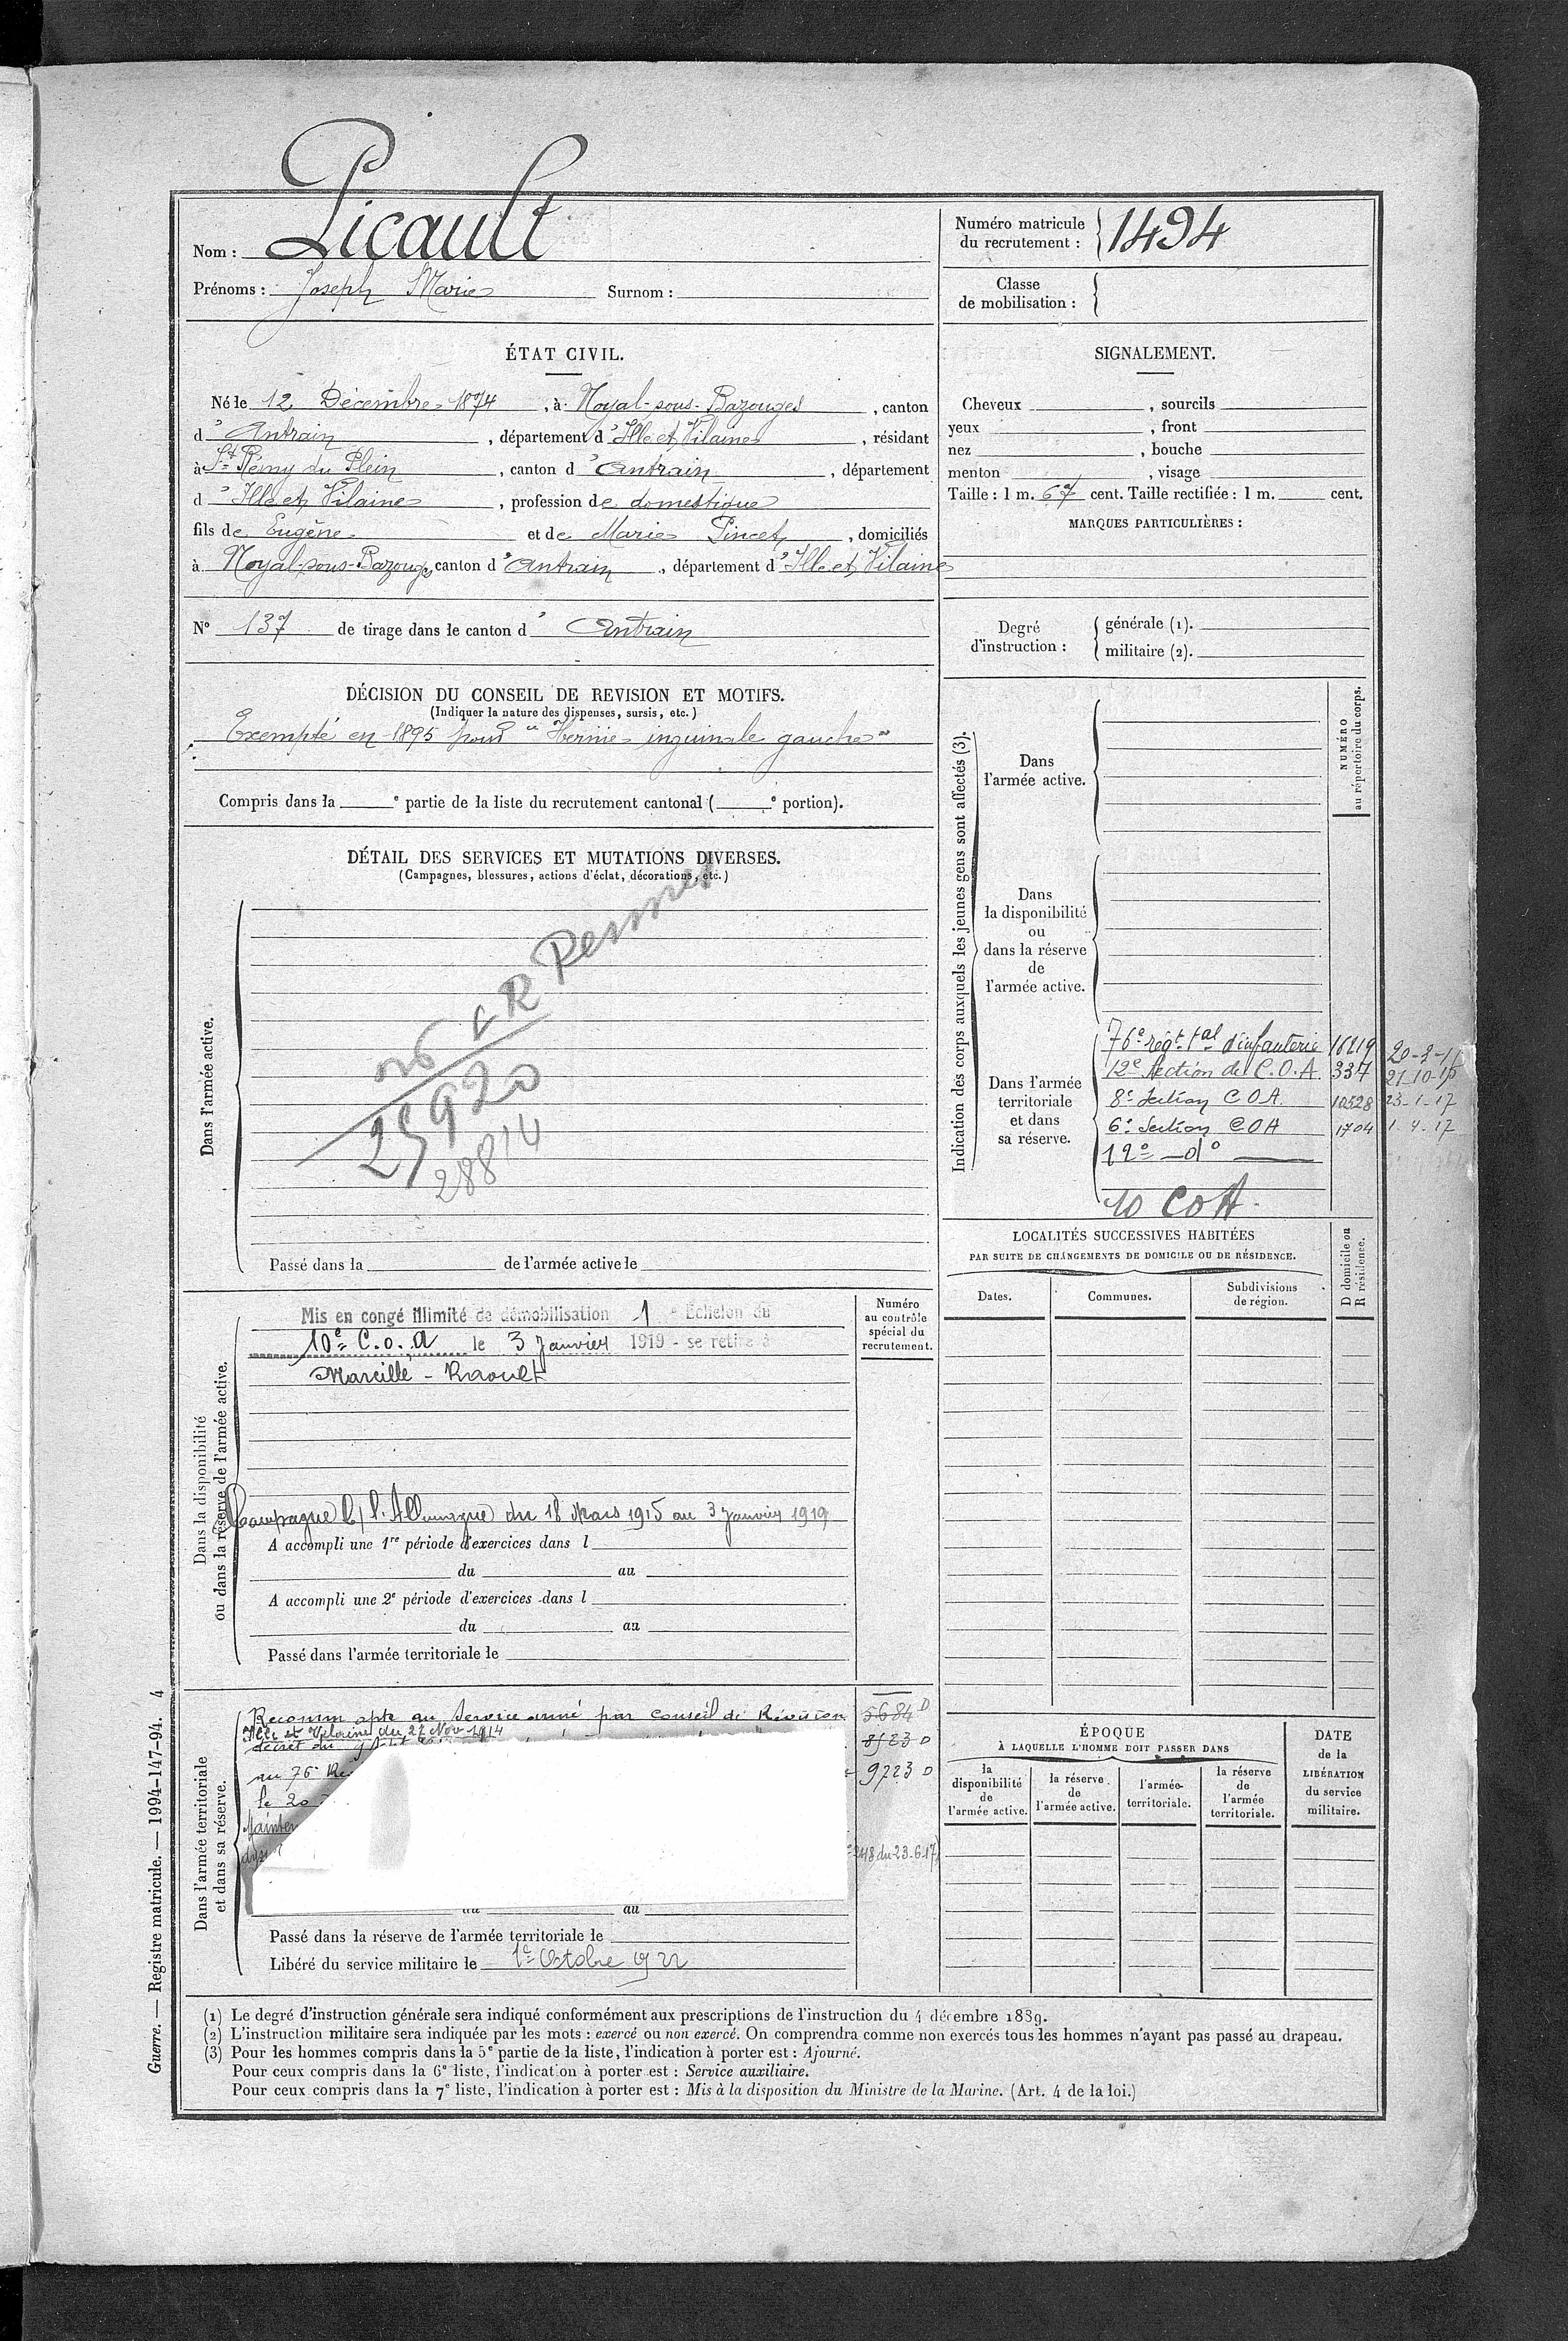 Nom : Picault
Prénoms : Joseph Marie Surnom :
Numéro matricule du recrutement : 1494
Classe de mobilisation :
ÉTAT CIVIL.
Né le 12 Décembre 1874, à Noyal-sous-Bazouges, canton
d'Antrain, département d'Ille et Vilaine, résidant
à St Rémy du Plein, canton d'Antrain, département
d'Ille et Vilaine, profession de domestique
fils de Eugène et de Marie Pincet, domiciliés
à Noyal-sous-Bazouges, canton d'Antrain, département d'Ille et Vilaine
N° 137 de tirage dans le canton d'Antrain
SIGNALEMENT.
Cheveux , sourcils
yeux , front
nez , bouche
menton , visage
Taille : 1 m. 67 cent. Taille rectifiée : 1 m. cent.
MARQUES PARTICULIÈRES :
Degré d'instruction :
générale (1).
militaire (2).
DÉCISION DU CONSEIL DE REVISION ET MOTIFS.
(Indiquer la nature des dispenses, sursis, etc.)
Exempté en 1895 pour "Hernie inguinale gauche"
Compris dans la e partie de la liste du recrutement cantonal ( e portion).
DÉTAIL DES SERVICES ET MUTATIONS DIVERSES.
(Campagnes, blessures, actions d'éclat, décorations, etc.)
Dans l'armée active.
25920
28814
Passé dans la de l'armée active le
Indication des corps auxquels les jeunes gens sont affectés (3).
NUMÉRO au répertoire du corps.
Dans
l'armée active.
Dans
la disponibilité
ou
dans la réserve
de
l'armée active.
Dans l'armée
territoriale
et dans
sa réserve.
76e régt tal d'infanterie 16219
12e Section de C.O.A. 337 21-10-15
8e Section C O A 10528 23-1-17
6e Section C O A 1704 1-4-17
12e —do—
10 COA.
LOCALITÉS SUCCESSIVES HABITÉES
PAR SUITE DE CHANGEMENTS DE DOMICILE OU DE RÉSIDENCE.
Dates. Communes. Subdivisions de région.
D domicile ou R résidence.
Dans la disponibilité
ou dans la réserve de l'armée active.
Numéro
au contrôle
spécial du
recrutement.
Mis en congé illimité de démobilisation 1 e Echelon du
10e C.O.A le 3 Janvier 1919 - se retire à
Marcillé - Raoult
Campagne c/ l'Allemagne du 18 Mars 1915 au 3 Janvier 1919
A accompli une 1re période d'exercices dans l
du au
A accompli une 2e période d'exercices dans l
du au
Passé dans l'armée territoriale le
Dans l'armée territoriale
et dans sa réserve.
Reconnu apte au Service armé par Conseil de Révision 5684 D
Ille et Vilaine du 27 Nov 1914
décret du 8523 D
au 76e 9723 D
le 20
218 du 23-6-17
au
Passé dans la réserve de l'armée territoriale le
Libéré du service militaire le 1er Octobre 1922
ÉPOQUE
À LAQUELLE L'HOMME DOIT PASSER DANS
la
disponibilité
de
l'armée active.
la réserve
de
l'armée active.
l'armée
territoriale.
la réserve
de
l'armée
territoriale.
DATE
de la
LIBÉRATION
du service
militaire.
(1) Le degré d'instruction générale sera indiqué conformément aux prescriptions de l'instruction du 4 décembre 1889.
(2) L'instruction militaire sera indiquée par les mots : exercé ou non exercé. On comprendra comme non exercés tous les hommes n'ayant pas passé au drapeau.
(3) Pour les hommes compris dans la 5e partie de la liste, l'indication à porter est : Ajourné.
Pour ceux compris dans la 6e liste, l'indication à porter est : Service auxiliaire.
Pour ceux compris dans la 7e liste, l'indication à porter est : Mis à la disposition du Ministre de la Marine. (Art. 4 de la loi.)
Guerre. — Registre matricule. — 1994-147-94. 4